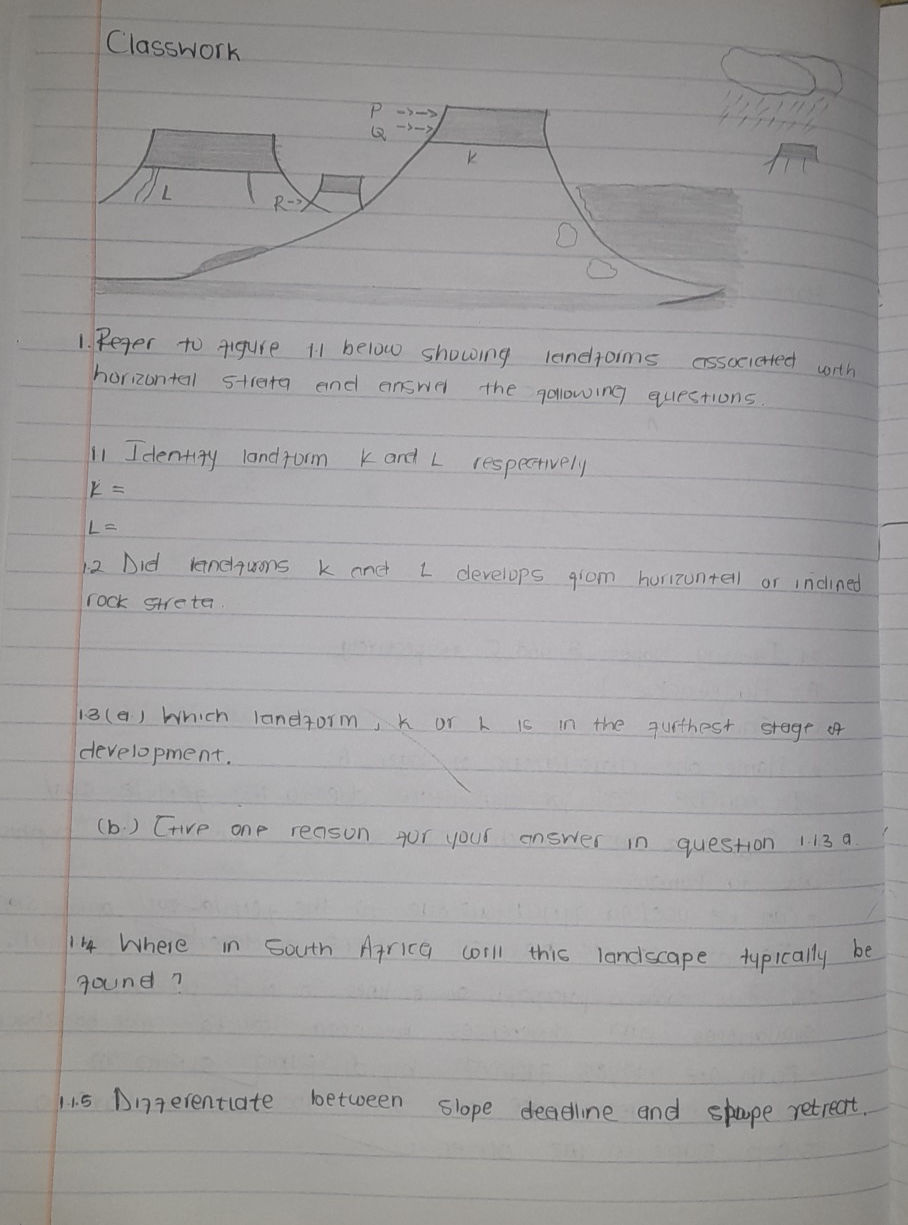 Classwork
P
Q
K
L
R
1. Refer to figure 1.1 below showing landforms associated with
horizontal strata and answer the following questions.
1.1 Identify landform K and L respectively
K =
L =
1.2 Did landforms K and L develops from horizontal or inclined
rock strata.
1.3 (a) Which landform, K or L is in the furthest stage of
development.
(b.) Give one reason for your answer in question 1.1.3 a.
1.1.4 Where in South Africa will this landscape typically be
found ?
1.1.5 Differentiate between slope deadline and retreat.